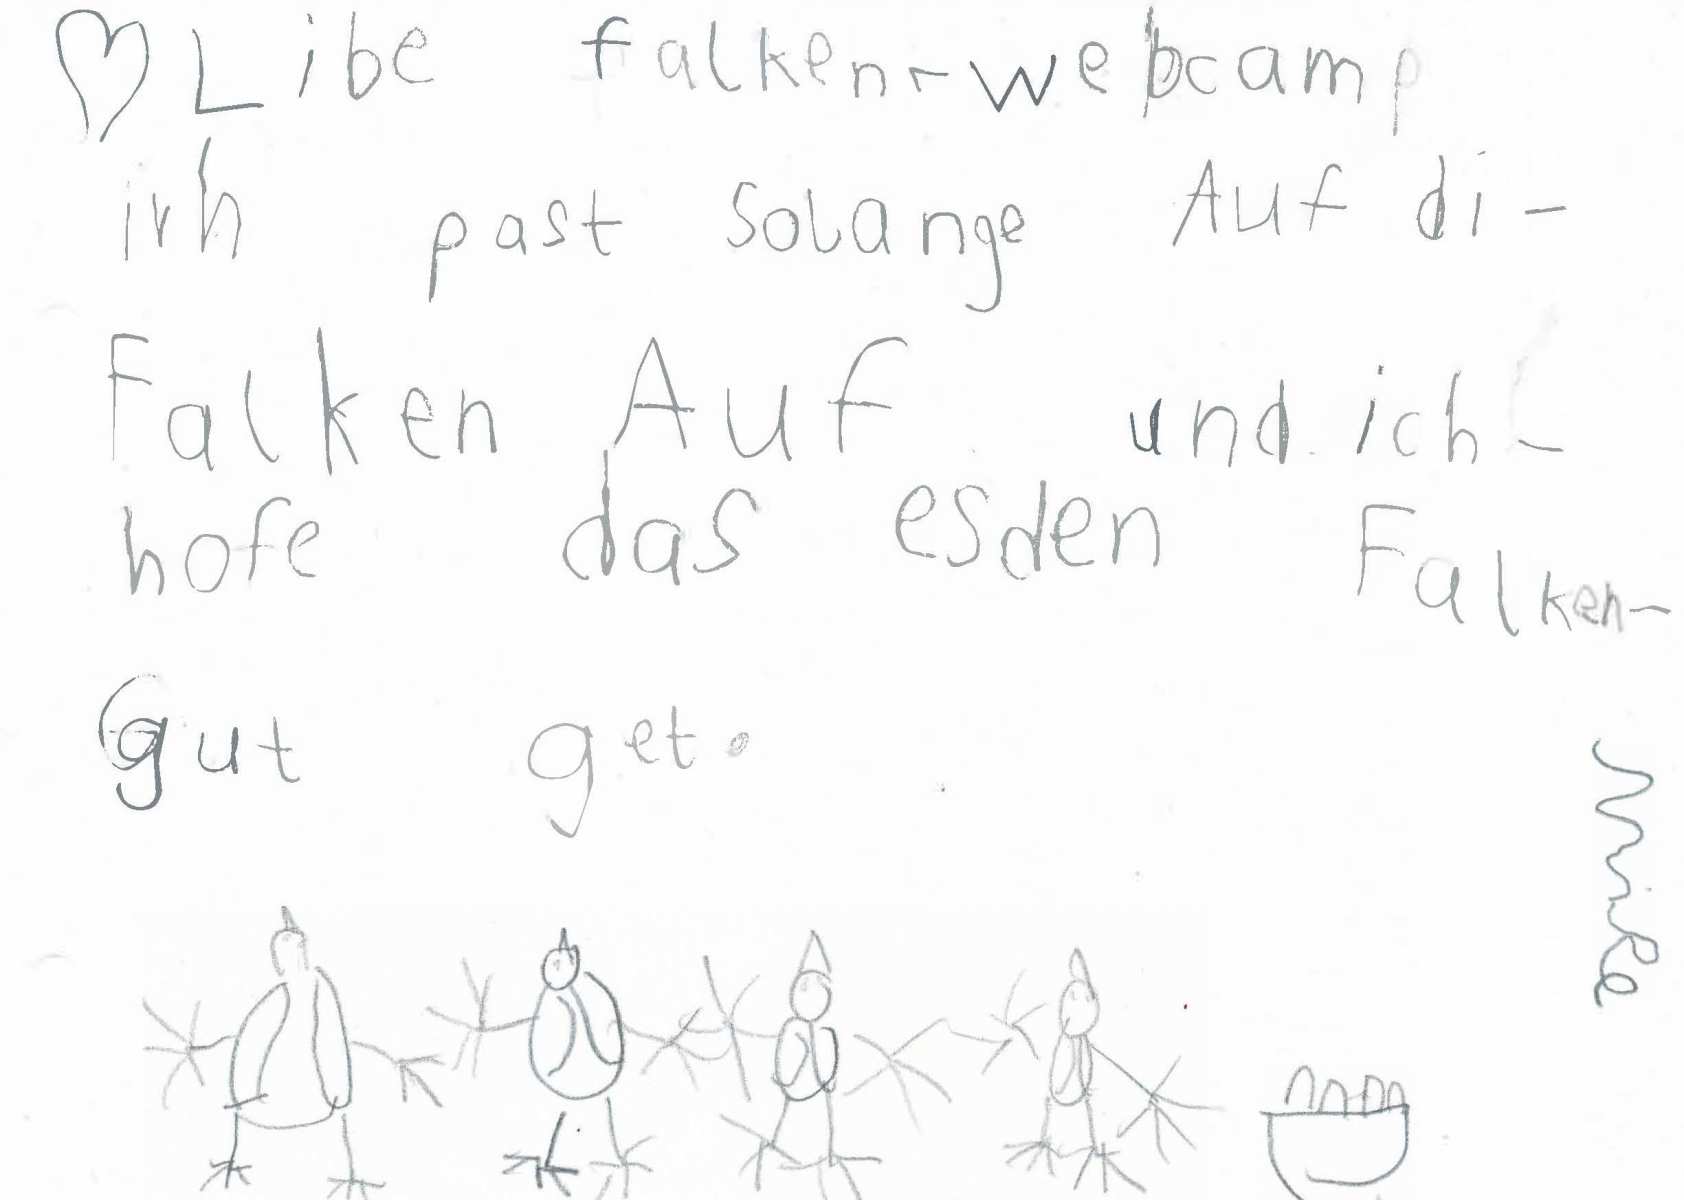 Libe falken-webcamp
irh past solange Auf di-
Falken Auf und ich-
hofe das esden Falken-
gut get.